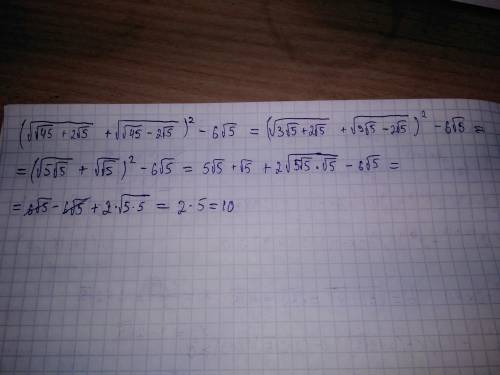 (√(√45 + 2√5) + √(√45 - 2√5))² - 6√5 = (√(3√5 + 2√5) + √(3√5 - 2√5))² - 6√5 =
= (√(5√5) + √(√5))² - 6√5 = 5√5 + √5 + 2√(5√5 · √5) - 6√5 =
= 6√5 - 6√5 + 2·√(5·5) = 2·5 = 10